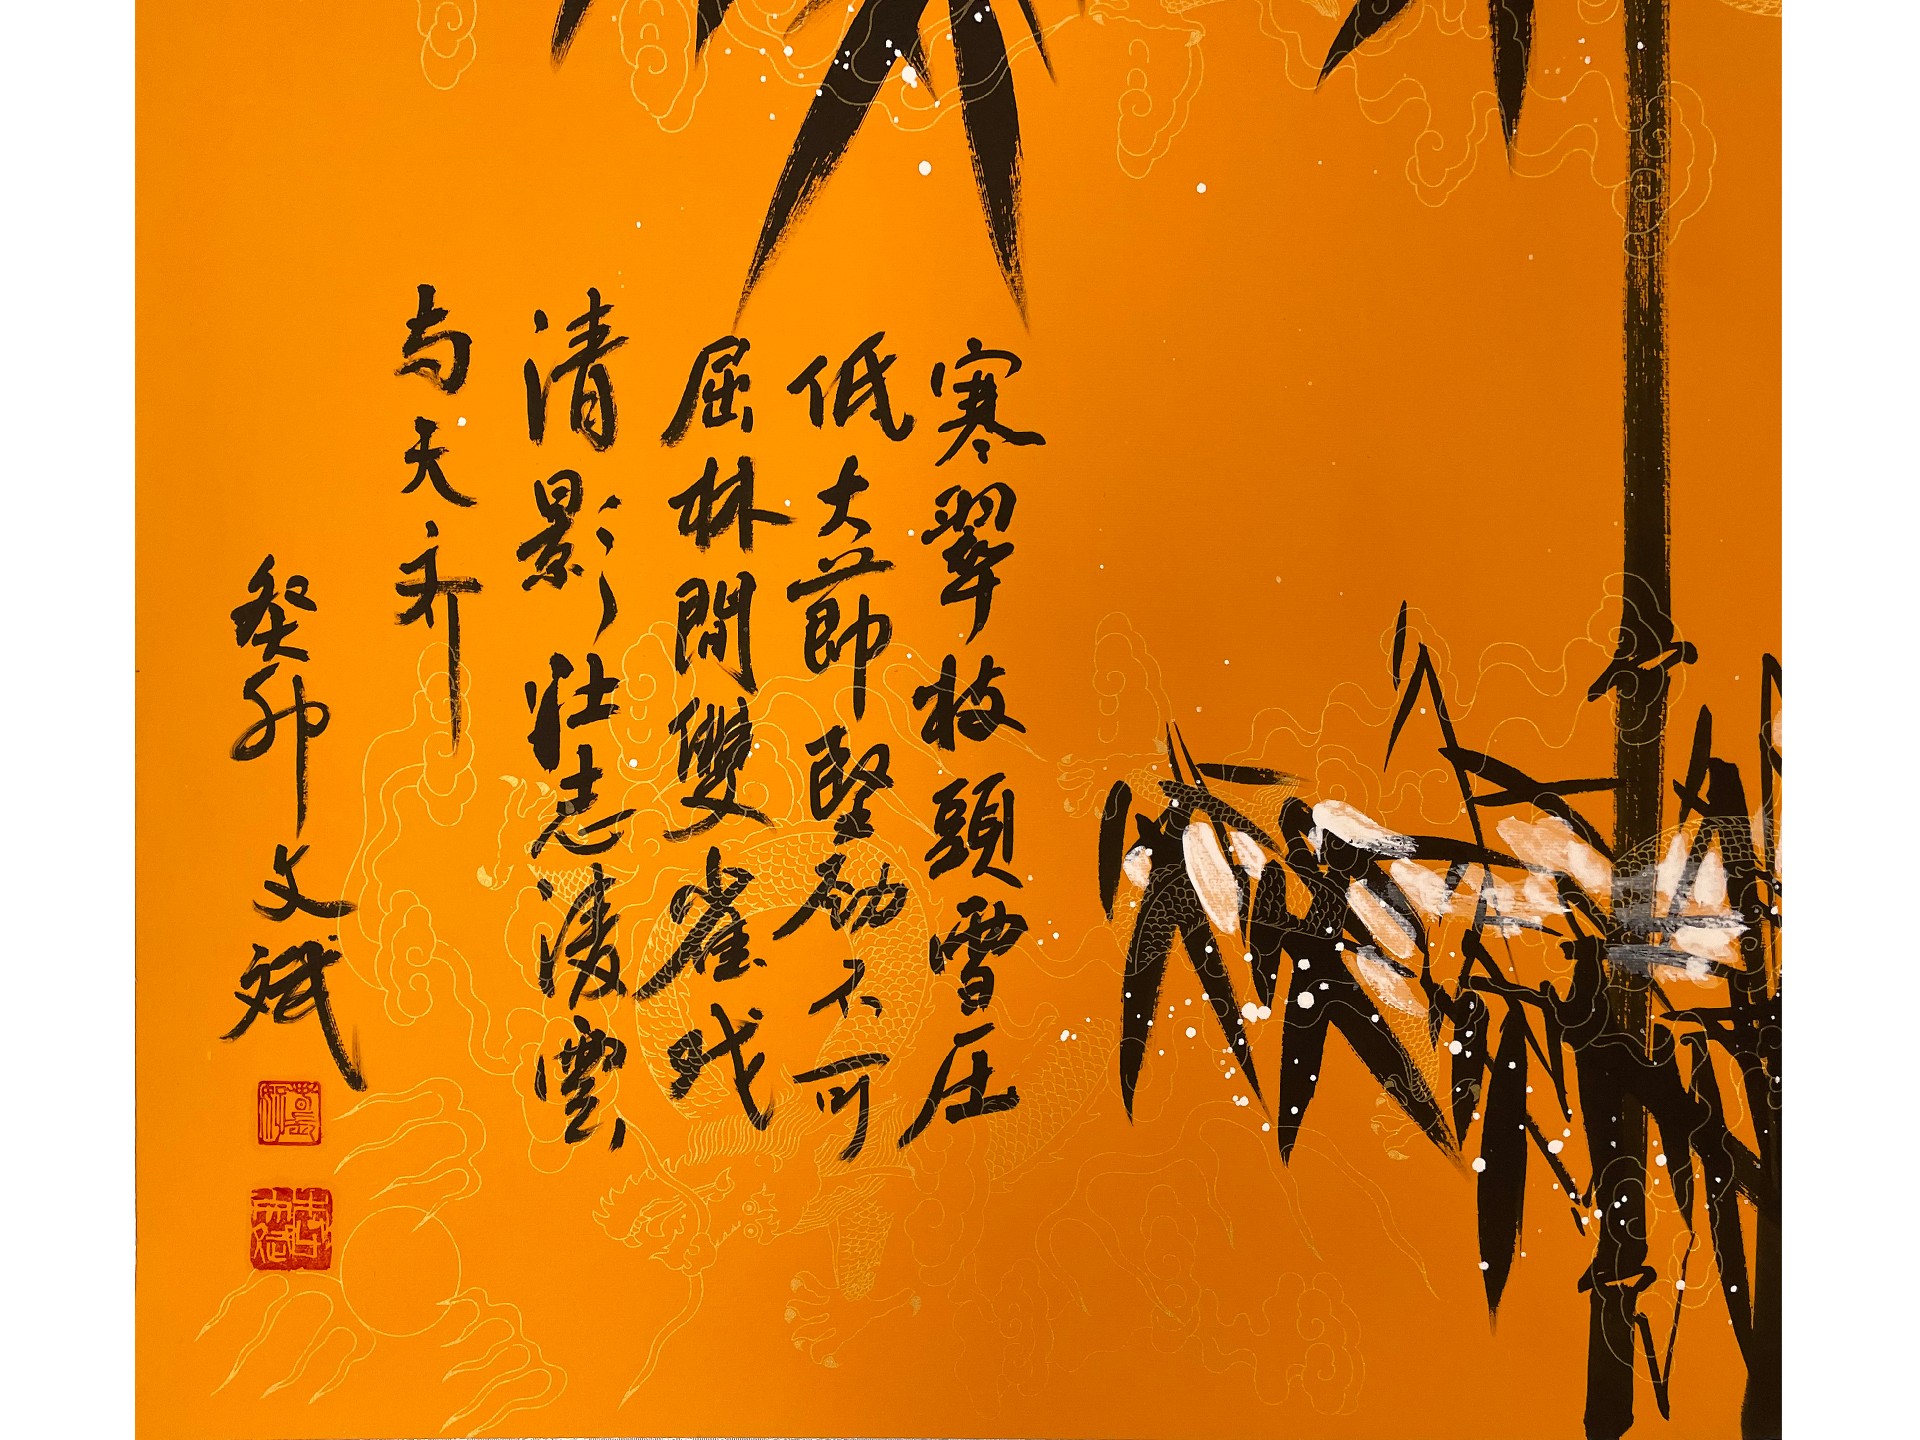 寒翠枝頭雪压
低大節堅劲不可
屈林間雙雀戏
清影壮志凌雲
与天齐
癸卯文斌